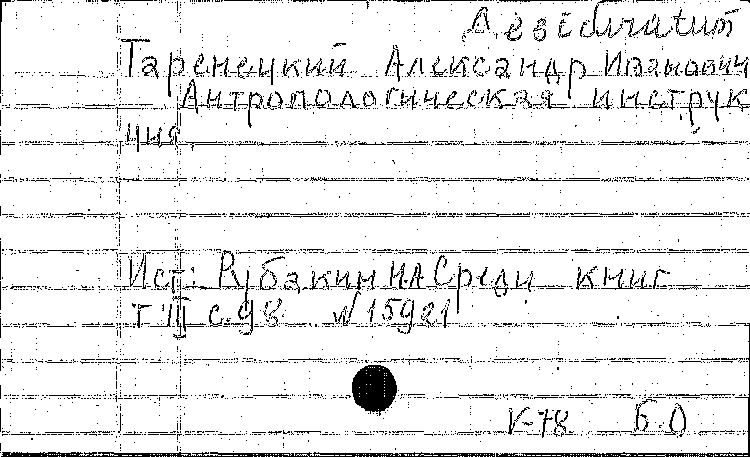 Desideratum
Таренецкий Александр Иванович
Антропологическая инструк
ция.
Ист: Рубакин НА Среди книг
т III с.98 N 15921
V-78 Б.О